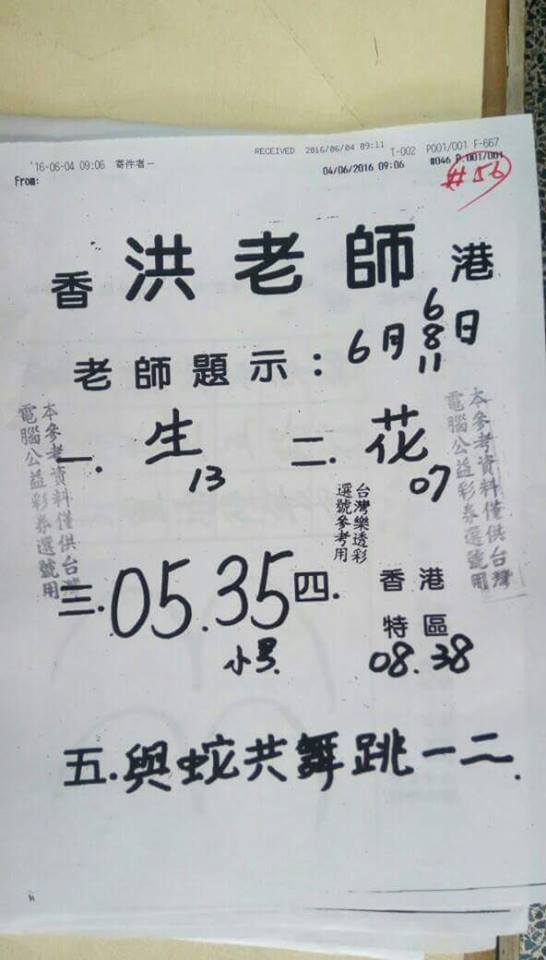 '16-06-04 09:06 寄件者－
RECEIVED 2016/06/04 09:11 T-002 P001/001 F-667
From:
04/06/2016 09:06 #046 P.001/001
#56
香 洪老師 港
老師題示：6月 6 8 11 日
一. 生 13
二. 花 07
本參考資料僅供台灣
電腦公益彩券選號用
台灣樂透彩
選號參考用
本參考資料僅供台灣
電腦公益彩券選號用
三. 05.35 小號.
四. 香港
特區
08.38
五.與蛇共舞跳一二.